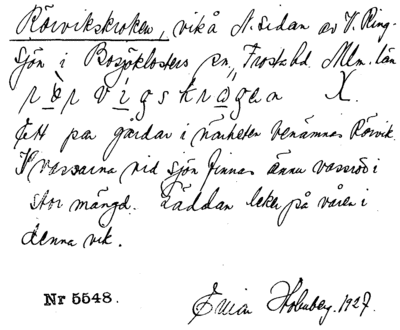 Rörvikskroken, vik å N. sidan av V. Ring-
sjön i Bosjöklosters sn, Frosta hd. Mlm. län
rö̀rvìgskrògen X.
Ett par gårdar i närheten benämnas Rörvik.
I vassarna vid sjön finnas ännu vassrör i
stor mängd. Gäddan leker på våren i
denna vik.
Nr 5548.
Ewa Holmberg. 1927.